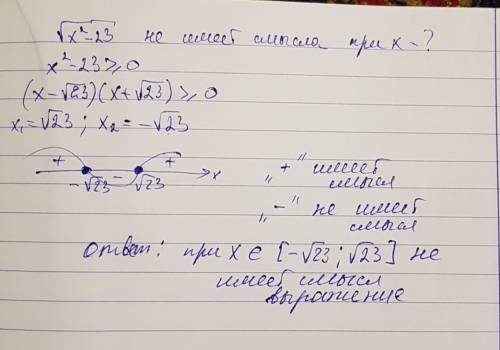 √x²-23 не имеет смысла при x - ?
x²-23⩾0
(x-√23)(x+√23)⩾0
x₁=√23; x₂=-√23
+ - + x
-√23 √23
„+" имеет
смысл
„-" не имеет
смысл
ответ: при x ∈ [-√23; √23] не
имеет смысл
выражение